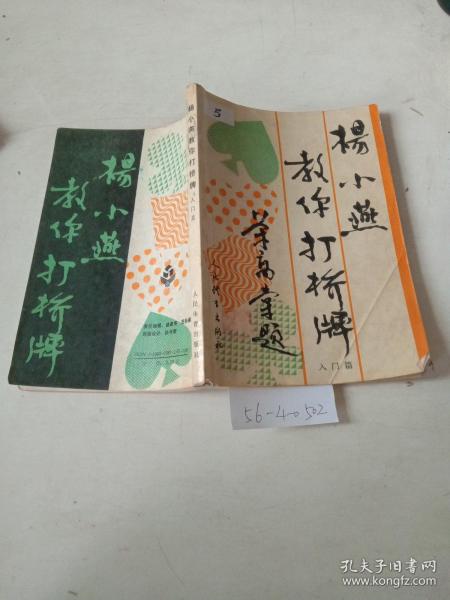 楊小燕
教你打桥牌
杨小燕教你打桥牌
入门篇
人民体育出版社
5
楊小燕
教你打桥牌
荣高棠题
人民体育出版社
入门篇
56-4-0502
孔夫子旧书网
www.kongfz.com